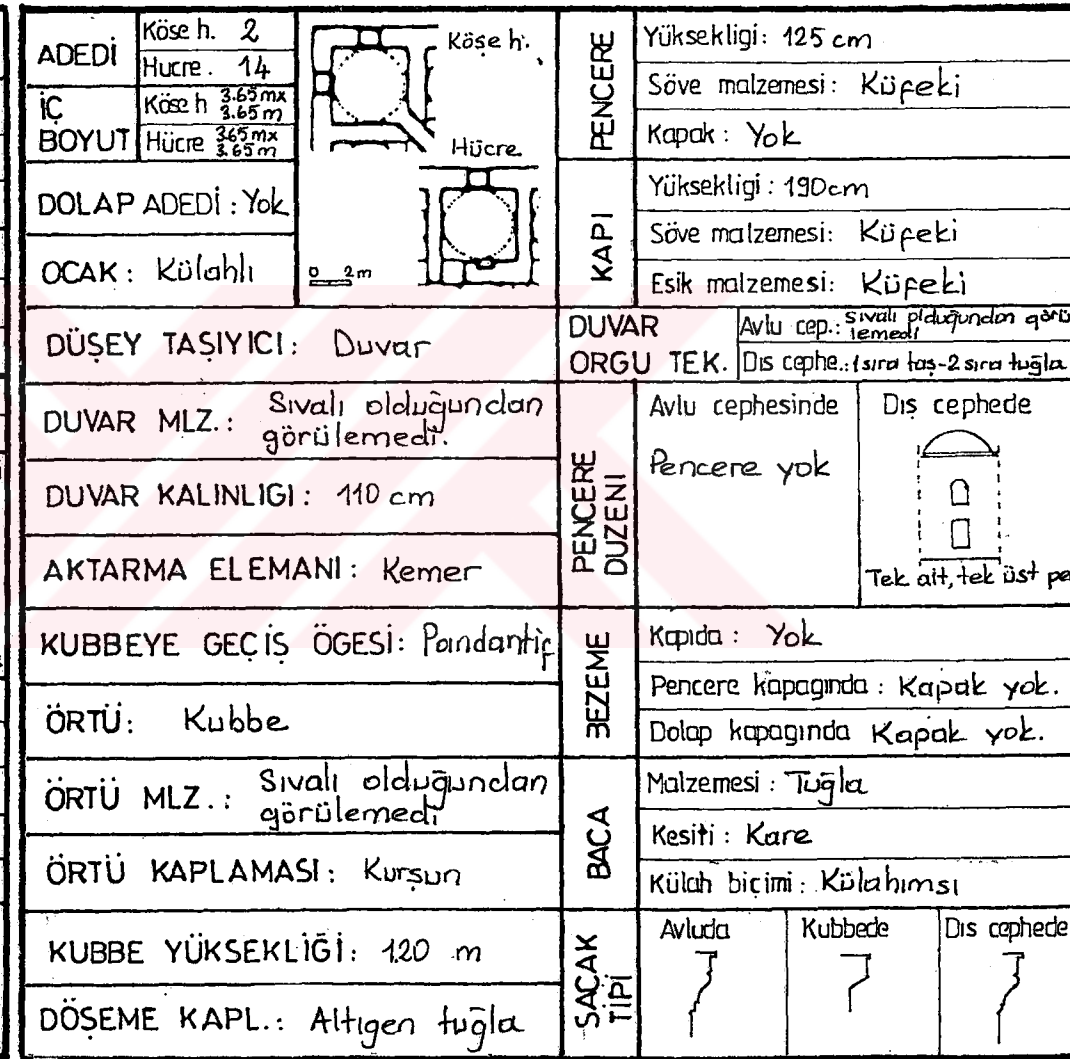 ADEDİ
Köse h. 2
Hucre. 14
İÇ BOYUT
Köse h 3.65 mx
3.65 m
Hücre 3.65 mx
3.65 m
DOLAP ADEDİ : Yok
OCAK : Külahlı
Köşe h.
Hücre
0 2m
DÜŞEY TAŞIYICI : Duvar
DUVAR MLZ. : Sıvalı olduğundan
görülemedi.
DUVAR KALINLIGI : 110 cm
AKTARMA ELEMANI : Kemer
KUBBEYE GEÇİŞ ÖGESİ: Pandantif
ÖRTÜ: Kubbe
ÖRTÜ MLZ. : Sıvalı olduğundan
görülemedi
ÖRTÜ KAPLAMASI : Kurşun
KUBBE YÜKSEKLİĞİ : 1.20 m
DÖŞEME KAPL. : Altıgen tuğla
PENCERE
Yüksekligi : 125 cm
Söve malzemesi : Küfeki
Kapak : Yok
KAPI
Yüksekligi : 190cm
Söve malzemesi: Küfeki
Esik malzemesi: Küfeki
DUVAR
ORGU TEK.
Avlu cep.: Sıvalı olduğundan görü
lemedi
Dıs cephe.: 1 sıra taş-2 sıra tuğla
PENCERE
DUZENI
Avlu cephesinde
Pencere yok
Dış cephede
Tek alt, tek üst pe
BEZEME
Kapıda : Yok
Pencere kapagında : Kapak yok.
Dolap kapagında Kapak yok.
BACA
Malzemesi : Tuğla
Kesiti : Kare
Külah biçimi : Külahımsı
SAÇAK
TİPİ
Avluda
Kubbede
Dıs cephede